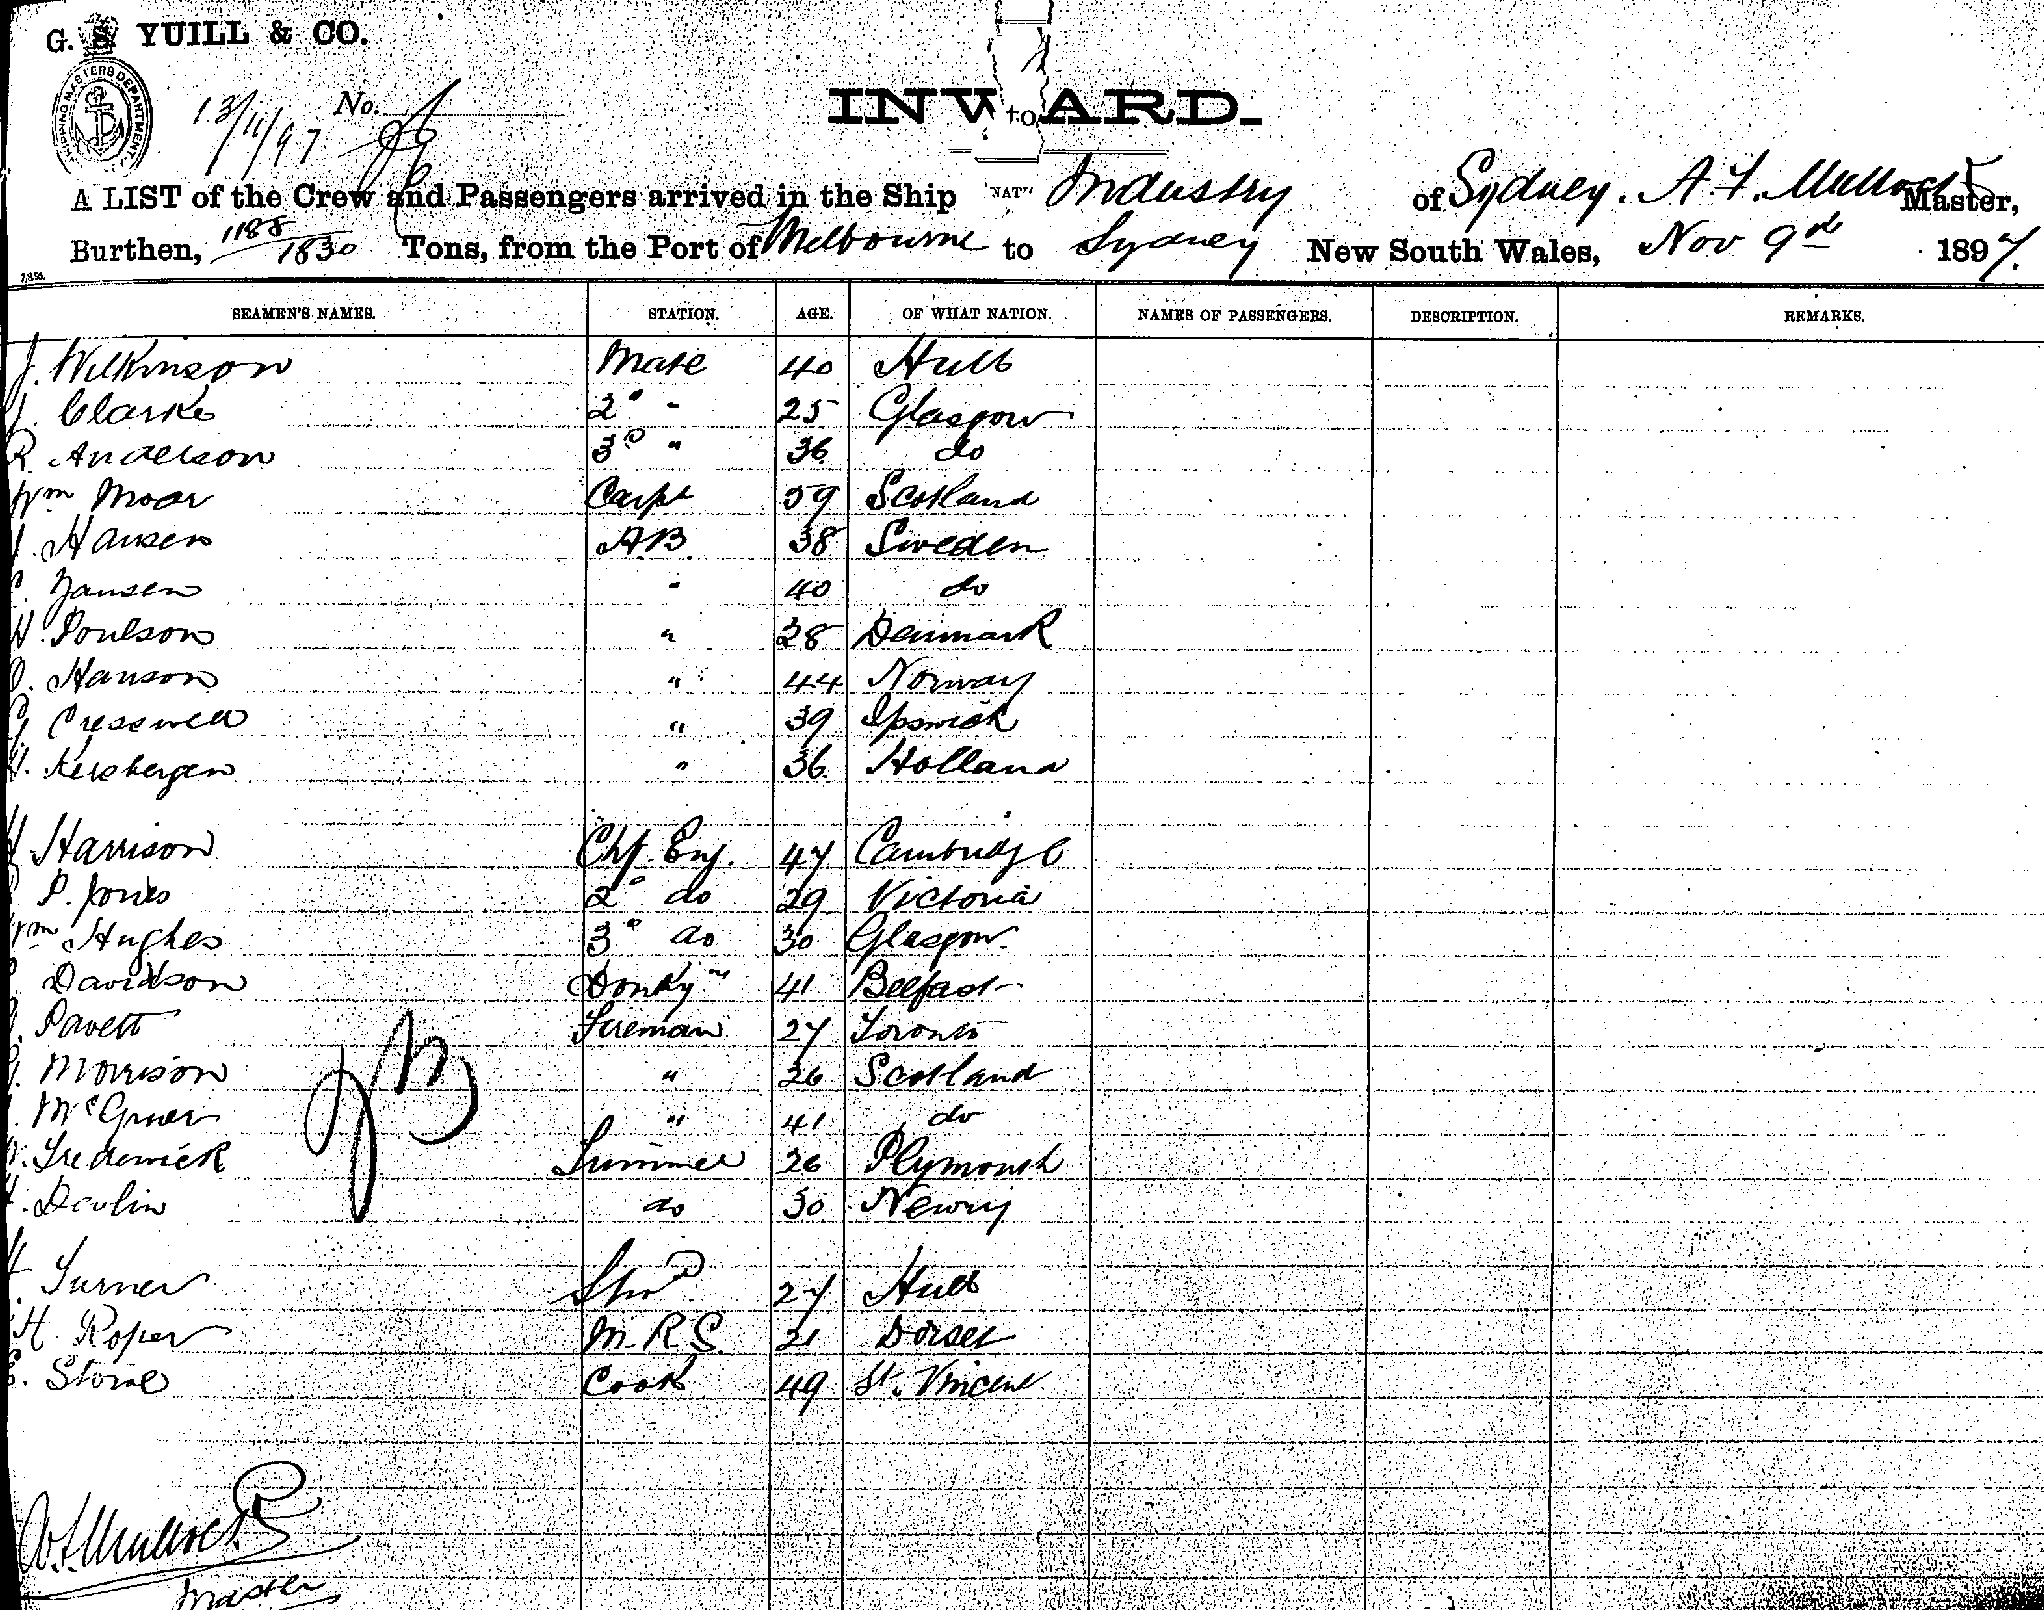 G. S. YUILL & CO.
SHIPPING MASTERS DEPARTMENT
13/11/97 No.
INWARD.
to
A LIST of the Crew and Passengers arrived in the Ship Industry of Sydney. A. F. Mullock Master,
Burthen, 1188/1830 Tons, from the Port of Melbourne to Sydney New South Wales, Nov 9th 1897.
SEAMEN'S NAMES. STATION. AGE. OF WHAT NATION. NAMES OF PASSENGERS. DESCRIPTION. REMARKS.
J. Wilkinson Mate 40 Hull
J. Clarke 2° " 25 Glasgow
R. Anderson 3° " 36 do
Wm Moar Carpt 59 Scotland
Hansen A.B. 38 Sweden
Jansen " 40 do
Poulson " 28 Denmark
O. Hanson " 44 Norway
G Cresswell " 39 Ipswich
Kersbergen " 36 Holland
H Harrison Chf. Eng. 47 Cambridge
P. Jones 2° do 29 Victoria
Wm Hughes 3° do 30 Glasgow
Davidson Donky 41 Belfast
Pavett Fireman 27 Toronto
Morrison " 26 Scotland
" 41 do
Frederick Trimmer 26 Plymouth
Devlin do 30 Newry
Turner Stwd 27 Hull
H. Roper M.R.S. 21 Dorset
E. Stowe Cook 49 St. Vincent
A. F. Mullock
Master